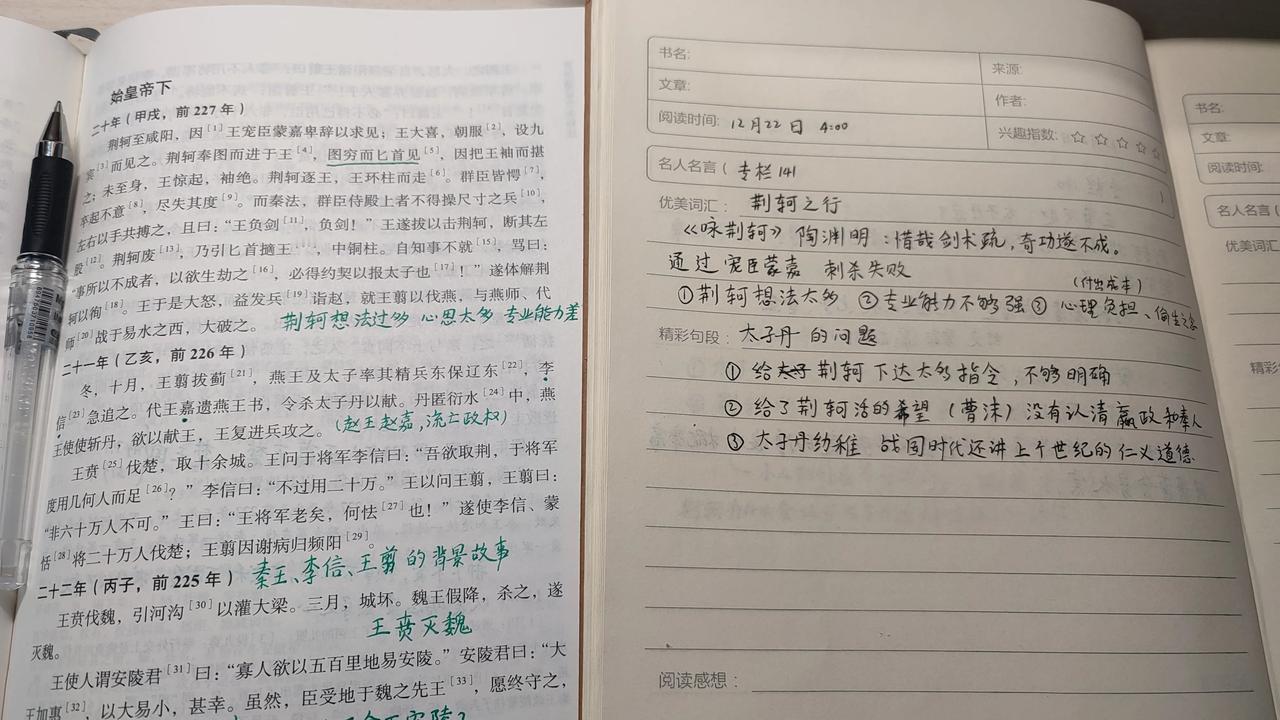 始皇帝下
二十年（甲戌，前 227 年）
荆轲至咸阳，因[1]王宠臣蒙嘉卑辞以求见；王大喜，朝服[2]，设九
宾[3]而见之。荆轲奉图而进于王[4]，图穷而匕首见[5]，因把王袖而揕
之；未至身，王惊起，袖绝。荆轲逐王，王环柱而走[6]。群臣皆愕[7]，
卒起不意[8]，尽失其度[9]。而秦法，群臣侍殿上者不得操尺寸之兵[10]，
左右以手共搏之，且曰：“王负剑[11]，负剑！”王遂拔以击荆轲，断其左
股[12]。荆轲废[13]，乃引匕首擿王，中铜柱。自知事不就[15]，骂曰：
“事所以不成者，以欲生劫之[16]，必得约契以报太子也[17]！”遂体解荆
轲以徇[18]。王于是大怒，益发兵[19]诣赵，就王翦以伐燕，与燕师、代
师[20]战于易水之西，大破之。 荆轲想法过多 心思太多 专业能力差
二十一年（乙亥，前 226 年）
冬，十月，王翦拔蓟[21]，燕王及太子率其精兵东保辽东[22]，李
信[23]急追之。代王嘉遗燕王书，令杀太子丹以献。丹匿衍水[24]中，燕
王使使斩丹，欲以献王，王复进兵攻之。（赵王赵嘉，流亡政权）
王贲[25]伐楚，取十余城。王问于将军李信曰：“吾欲取荆，于将军
度用几何人而足[26]？”李信曰：“不过用二十万。”王以问王翦，王翦曰：
“非六十万人不可。”王曰：“王将军老矣，何怯[27]也！”遂使李信、蒙
恬[28]将二十万人伐楚；王翦因谢病归频阳[29]。
秦王、李信、王翦的背景故事
二十二年（丙子，前 225 年）
王贲伐魏，引河沟[30]以灌大梁。三月，城坏。魏王假降，杀之，遂
灭魏。 王贲灭魏
王使人谓安陵君[31]曰：“寡人欲以五百里地易安陵。”安陵君曰：“大
王加惠[32]，以大易小，甚幸。虽然，臣受地于魏之先王[33]，愿终守之，
书名：
来源：
文章：
作者：
阅读时间：12月22日 4:00
兴趣指数：☆ ☆ ☆ ☆ ☆
名人名言（ 专栏 141 ）
优美词汇： 荆轲之行
《咏荆轲》 陶渊明：惜哉剑术疏，奇功遂不成。
通过宠臣蒙嘉 刺杀失败
（付出成本）
①荆轲想法太多 ②专业能力不够强 ③ 心理负担、偷生之念
精彩句段：太子丹的问题
① 给太子荆轲下达太多指令，不够明确
② 给了荆轲活的希望（曹沫）没有认清嬴政和秦人
③ 太子丹幼稚 战国时代还讲上个世纪的仁义道德
阅读感想：
书名：
文章：
阅读时间：
名人名言（
优美词汇